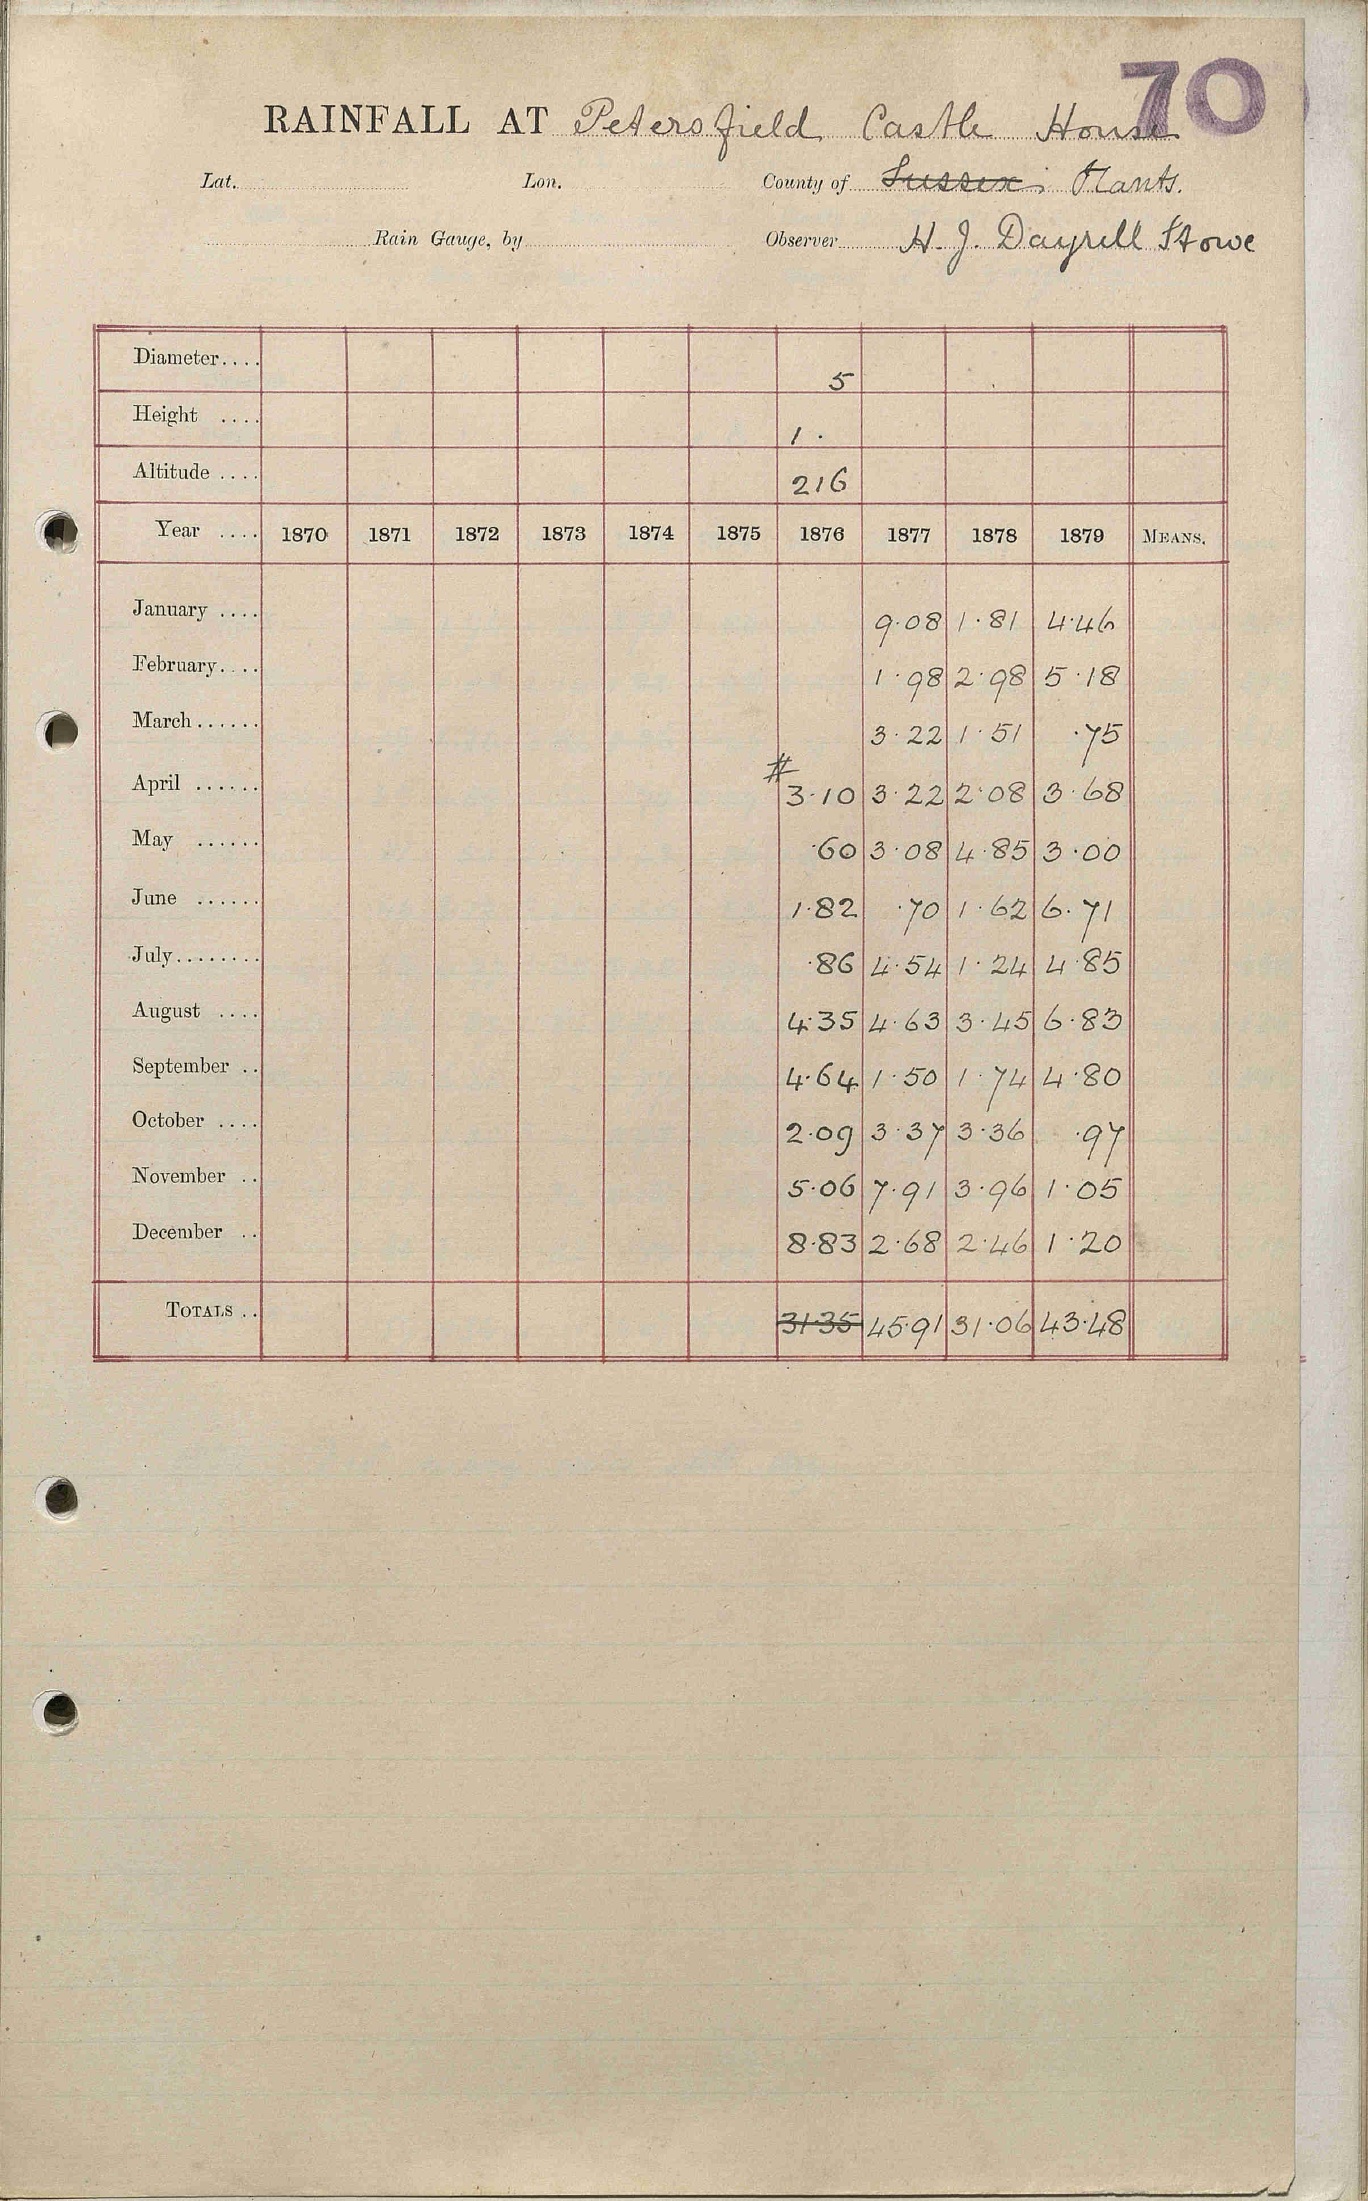 70
RAINFALL AT Petersfield Castle House
Lat. Lon. County of Sussex; Hants.
Rain Gauge, by Observer H. J. Dayrell Stowe
Diameter.... 5
Height .... 1 ·
Altitude .... 216
Year .... 1870 1871 1872 1873 1874 1875 1876 1877 1878 1879 MEANS.
January .... 9·08 1·81 4·46
February.... 1·98 2·98 5·18
March...... 3·22 1·51 ·75
April ...... # 3·10 3·22 2·08 3·68
May ...... ·60 3·08 4·85 3·00
June ...... 1·82 ·70 1·62 6·71
July........ ·86 4·54 1·24 4·85
August .... 4·35 4·63 3·45 6·83
September .. 4·64 1·50 1·74 4·80
October .... 2·09 3·37 3·36 ·97
November .. 5·06 7·91 3·96 1·05
December .. 8·83 2·68 2·46 1·20
TOTALS .. 31·35 45·91 31·06 43·48